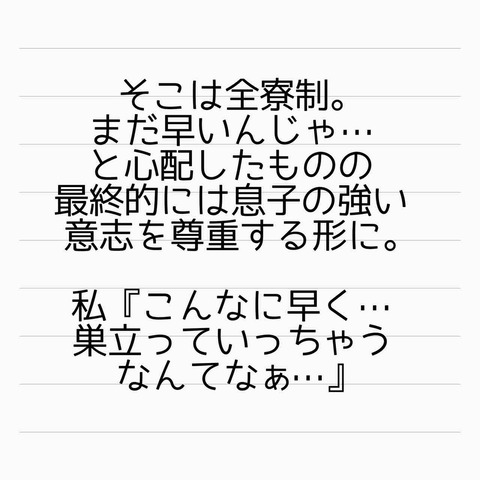 そこは全寮制。
まだ早いんじゃ…
と心配したものの
最終的には息子の強い
意志を尊重する形に。
私『こんなに早く…
巣立っていっちゃう
なんてなぁ…』